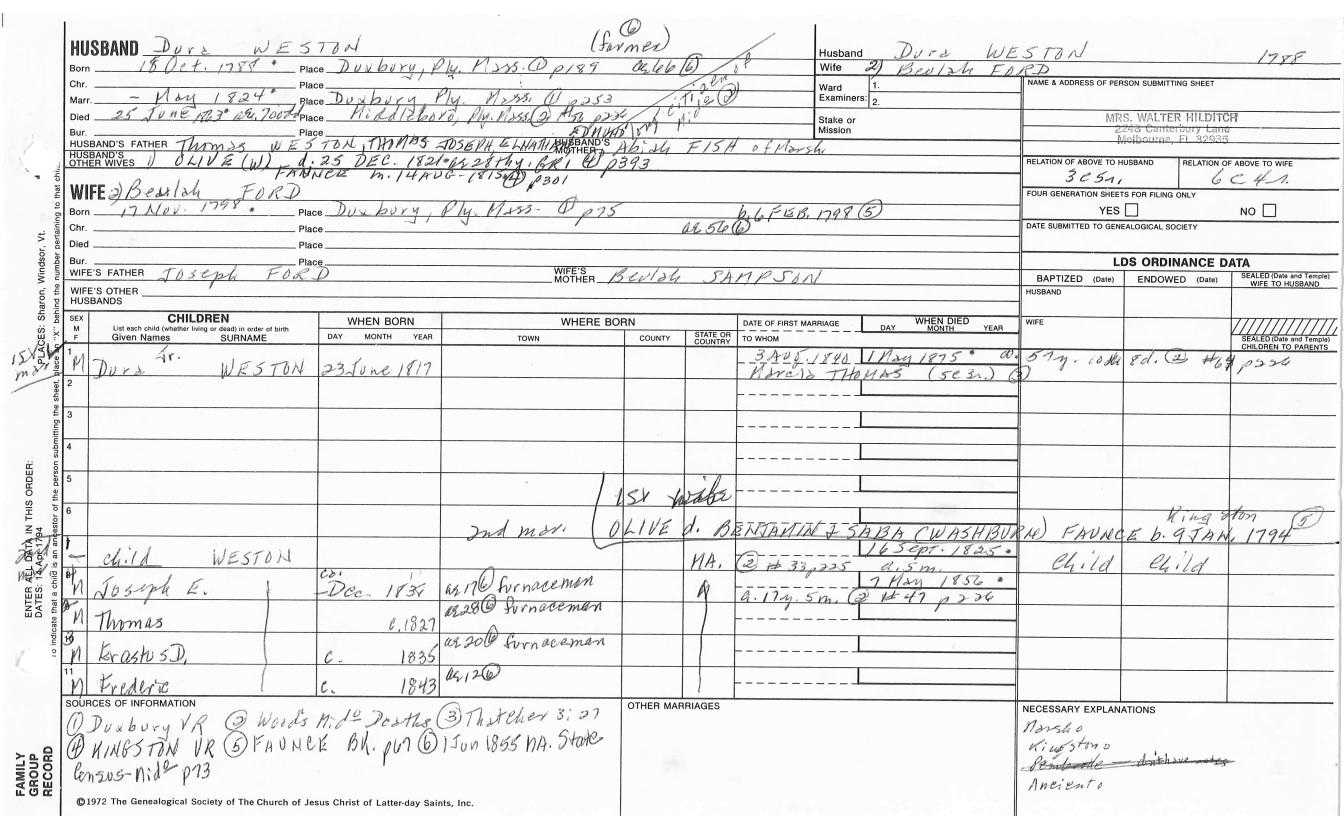 (6)
HUSBAND Dura WESTON (farmer)
Born 18 Oct. 1788 Place Duxbury, Ply. Mass. (1) p189 ae 66 (6)
Chr. Place
Marr. - May 1824 Place Duxbury Ply. Mass. (1) p253
Died 25 June Place Middleboro, Ply. Mass. (2) p226
Bur. Place
HUSBAND'S FATHER Thomas WESTON, THOMAS JOSEPH, ELNATHAN, EDMUND HUSBAND'S MOTHER Abiah FISH of Marsh.
HUSBAND'S OTHER WIVES 1) OLIVE (W) d. 25 DEC. 1821 ae 28thy. GR1 (4) p393
FAUNCE m. 14 AUG. 1815 (4) p301
Husband Dura WESTON 1788
Wife 2) Beulah FORD
Ward Examiners: 1.
2.
Stake or Mission
NAME & ADDRESS OF PERSON SUBMITTING SHEET
MRS. WALTER HILDITCH
2248 Canterbury Lane
Melbourne, FL 32935
RELATION OF ABOVE TO HUSBAND RELATION OF ABOVE TO WIFE
3c5r. 6c4r.
FOUR GENERATION SHEETS FOR FILING ONLY
YES NO
DATE SUBMITTED TO GENEALOGICAL SOCIETY
WIFE 2) Beulah FORD
Born 17 Nov. 1798 Place Duxbury, Ply. Mass. (1) p75 b. 6 FEB. 1798 (5)
Chr. Place ae 56 (6)
Died Place
Bur. Place
WIFE'S FATHER Joseph FORD WIFE'S MOTHER Beulah SAMPSON
WIFE'S OTHER HUSBANDS
LDS ORDINANCE DATA
BAPTIZED (Date) ENDOWED (Date) SEALED (Date and Temple) WIFE TO HUSBAND
HUSBAND
WIFE
SEALED (Date and Temple) CHILDREN TO PARENTS
SEX M F
CHILDREN
List each child (whether living or dead) in order of birth
Given Names SURNAME
WHEN BORN
DAY MONTH YEAR
WHERE BORN
TOWN COUNTY STATE OR COUNTRY
DATE OF FIRST MARRIAGE
TO WHOM
WHEN DIED
DAY MONTH YEAR
1 M Dura Jr. WESTON 23 June 1817 3 AUG. 1840 1 May 1875 a. 57y. 10m 8d. (2) #69 p226
Marcia THOMAS (5c3r.) (3)
2
3
4
5
6
1st wife
2nd mar. OLIVE d. BENJAMIN & SABA (WASHBURN) FAUNCE b. 9 JAN. 1794 Kingston (5)
child WESTON MA. 16 Sept. 1825
(2) #33, 225 a. 5m. Child Child
M Joseph E. - Dec. ae 17 (6) furnaceman 7 May 1856
a. 17y. 5m. (2) #47 p226
M Thomas c. 1827 ae 28 (6) furnaceman
M Erastus D. c. 1835 ae 20 (6) furnaceman
11 M Frederic c. 1843 ae 12 (6)
SOURCES OF INFORMATION
(1) Duxbury VR (2) Wood's Mido Deaths (3) Thatcher 3:27
(4) KINGSTON VR (5) FAUNCE BK. p67 (6) 1 Jun 1855 MA. State
Census-Mido p73
OTHER MARRIAGES
NECESSARY EXPLANATIONS
Marsho
Kingstono
Anciento
©1972 The Genealogical Society of The Church of Jesus Christ of Latter-day Saints, Inc.
FAMILY GROUP RECORD
ENTER ALL DATA IN THIS ORDER:
DATES: 14 Apr 1794
PLACES: Sharon, Windsor, Vt.